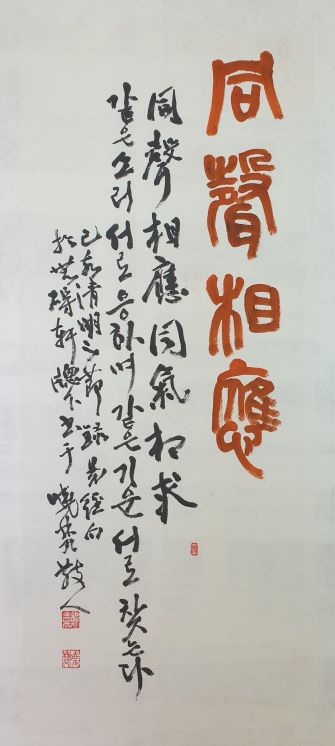 同聲相應
同聲相應同氣相求
같은 소리 서로 응하며 같은 기운 서로 찾는다
己亥淸明之節錄易經句
於世碍軒窓下 曉 散人